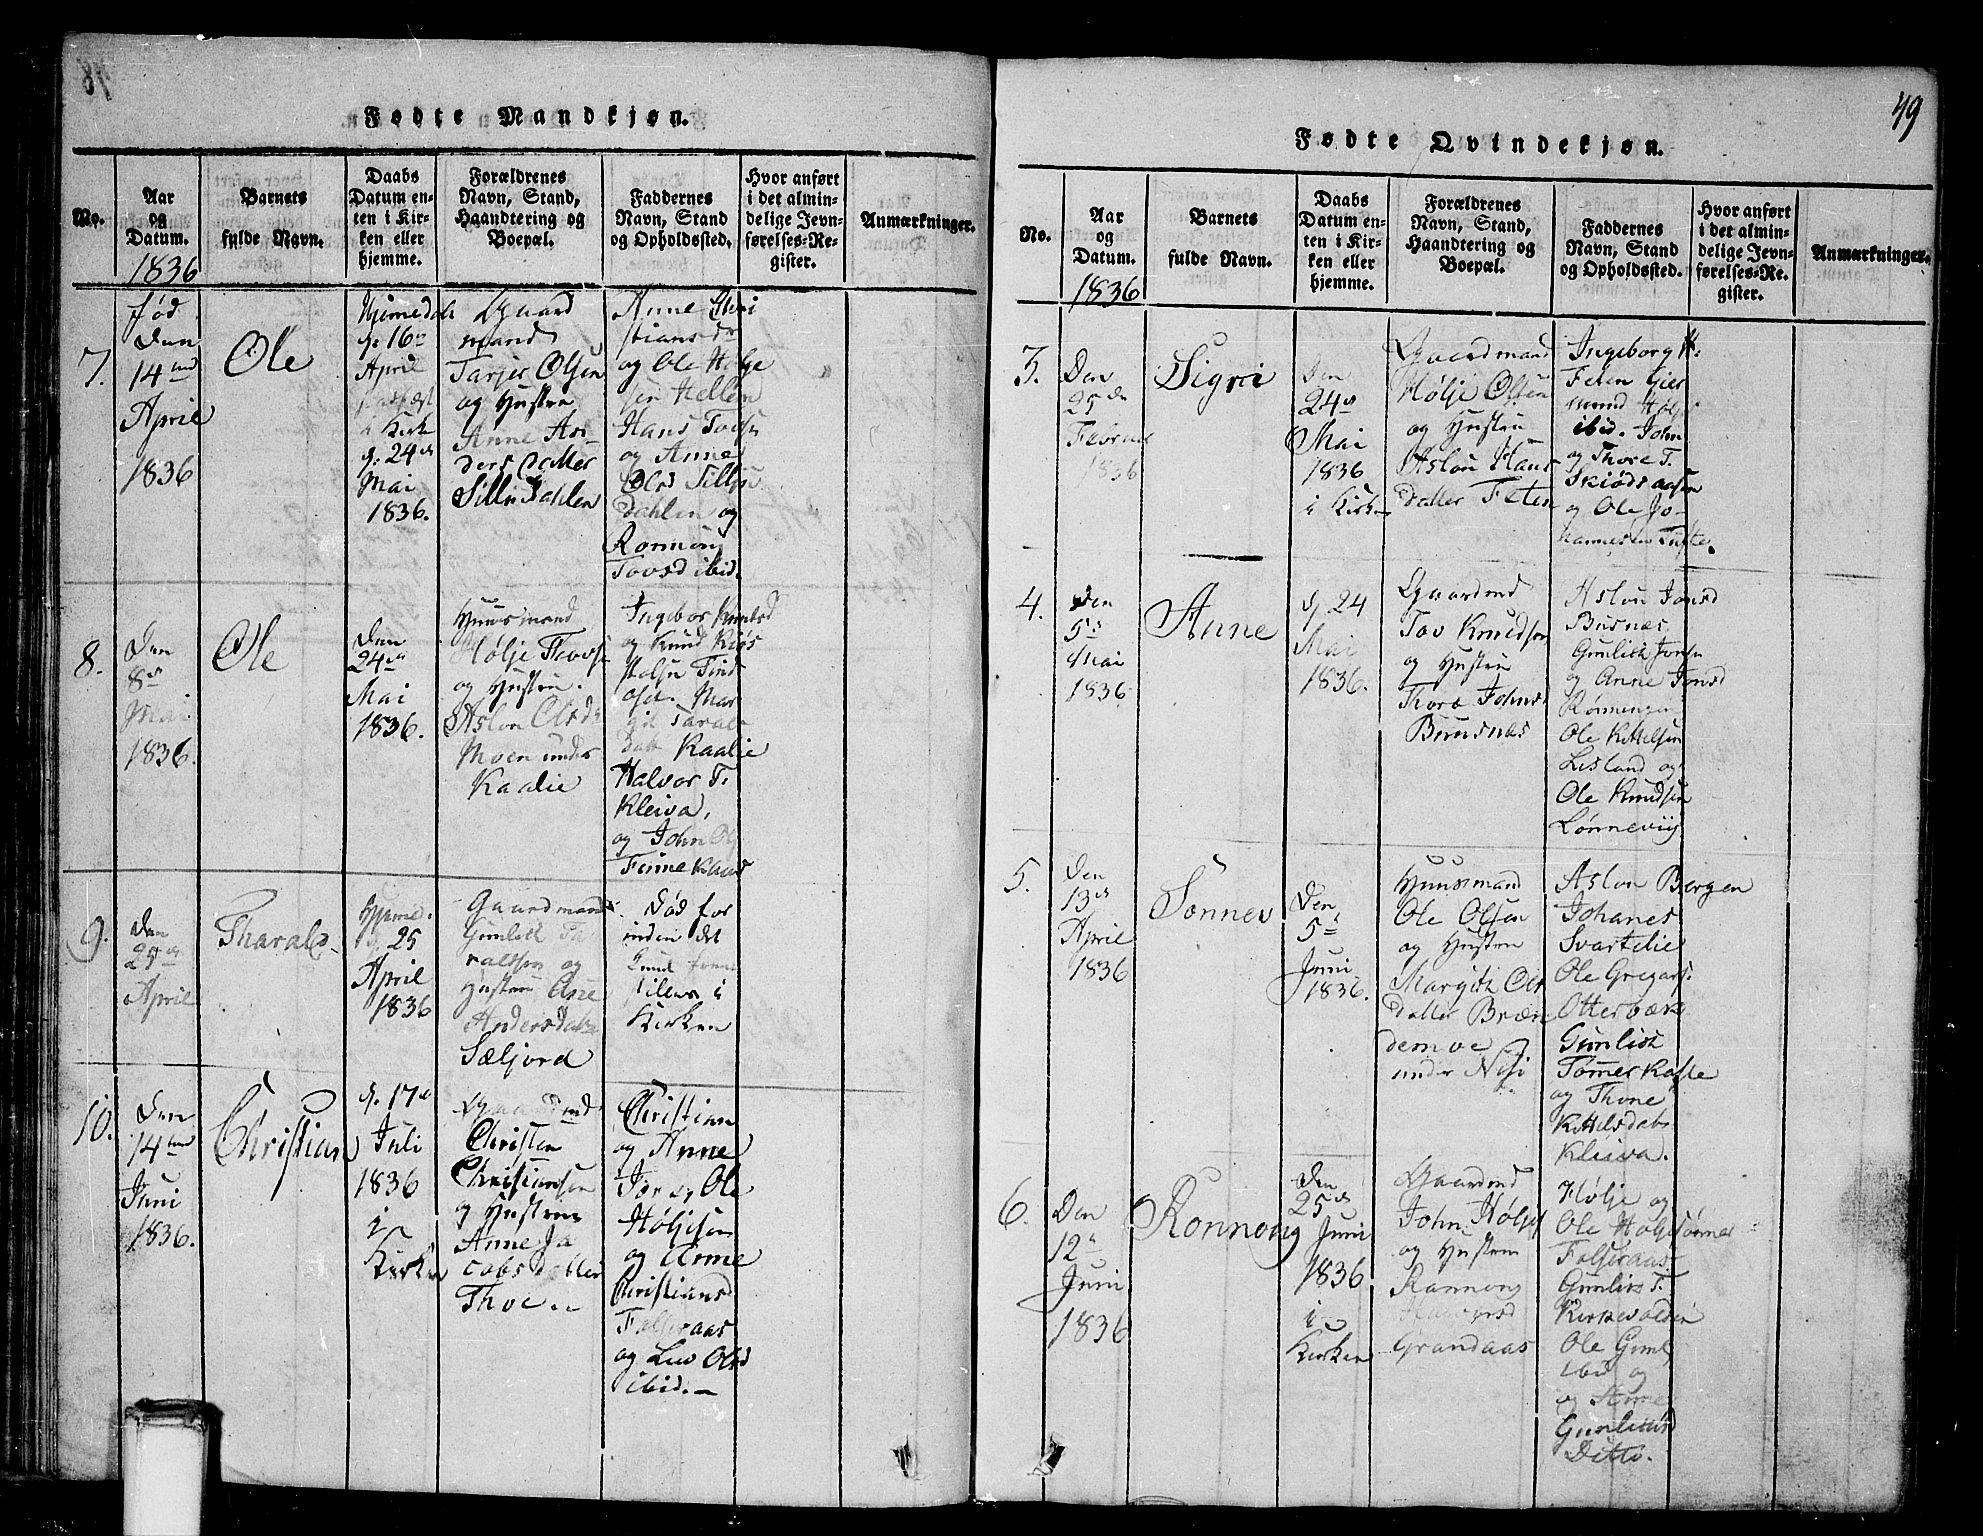 Fødte Mandkjøn.
No.
Aar
og
Datum.
1836
Barnets
fulde Navn.
Daabs
Datum en-
ten i Kir-
ken eller
hjemme.
Forældrenes
Navn, Stand,
Haandtering og
Boepæl.
Faddernes
Navn, Stand
og Opholdssted.
Hvor anført
i det almin-
delige Jevn-
førelses-Re-
gister.
Anmærkninger.
7.
fød
Den
14
April
1836
Ole
Hjemedøb
d. 16
April
i Kirk
d. 24
Mai
1836.
Gaard
mand
Tarjer Olsen
og Hustru
Anne An-
ders Datter
Anne Chri
stiansdr
og Ole Hølje
sen Hellen
Hans Tovsen
og Anne
Olsd
Dahlen og
Ronnong
Tovsd ibid.
8.
Den
8
Mai
1836.
Ole
Den
24
Mai
1836.
Huusmand
Hølje Thovs
og Hustru.
Aslou Olsd
Moen under
Kaalie
Ingebor Knudsd
og Knud
Mar
git Taralds
datt Kaalie
Halvor T.
Kleiva,
og John Ols
9.
Den
25
April
Tharald
Hjeme.
d. 25
April
1836
Gaardmand
Gunlek Ta
raldsen og
Hustru Ane
Andersdatr
Sæljord
Død for
inden det
i
Kirken
10.
Den
14
Juni
1836.
Christian
d. 17
Juli
1836
i
Kirken
Gaardmd
Christen
Christiansen
og Hustrue
Anne Ja
cobs Datter
Thoen
Christian
og Anne
Ole
Høljesen
og Anne
Christiansd
Folseraas
og Liv Olsd
ibid.
49
Fødte Qvindekjøn.
No.
Aar
og
Datum.
1836
Barnets
fulde Navn.
Daabs
Datum en-
ten i Kir-
ken eller
hjemme.
Forældrenes
Navn, Stand,
Haandtering og
Boepæl.
Faddernes
Navn, Stand
og Opholdssted.
Hvor anført
i det almin-
delige Jevn-
førelses-Re-
gister.
Anmærkninger.
3.
Den
25
Februar
1836
Sigri
Den
24
Mai
1836
i Kirken
Gaardmand
Hølje Olsen
og Hustru
Aslou Hans
datter Feten
Ingeborg H.
Feten Gier
mund Høljes
ibid. John
og Thore T.
Skiødsaasen
og Ole Jo-
hannesen Tufte.
4.
Den
5
Mai
1836
Anne
d. 24
Mai
1836.
Gaardmd
Tov Knudsen
og Hustru
Thore Johns
Buusnæs
Aslou Jonsd
Busnæs
Gunlek Jonsen
og Anne Jonsd
Rønningen
Ole Kittelsen
Lisland og
Ole Knudsen
Lønneviig
5.
Den
13
April
1836
Sønnev
Den
5
Juni
1836.
Huusmand
Ole Olsen
og Hustru
Margith Ols
datter Bræn
demoe
under Nisi
Aslou Bergen
Johanes
Svartelie
Ole Gregars.
Otterbæk
Gunlek
Tømerkaste
og Thone
Kittelsdatr
Kleiva.
6.
Den
12
Juni
1836
Ronnong
Den
25
Juni
1836
i
Kirken
Gaardmd
John Høljes
og Hustru
Rannong
Halvorsd
Grandaas
Hølje og
Ole Høljesønner
Folseraas
Gunlek T.
Kirkevolden
Ole Gunl
ibid og
og Anne
Gunleiksd
Ditto.